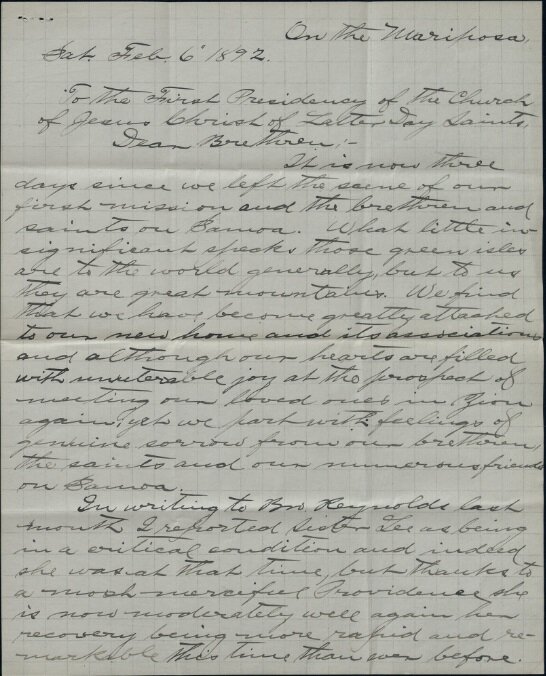 On the Mariposa.
Sat. Feb. 6 1892.
To the First Presidency of the Church
of Jesus Christ of Latter Day Saints,
Dear Brethren:-
It is now three
days since we left the scene of our
first mission and the brethren and
saints on Samoa. What little in-
significant specks those green isles
are to the world generally, but to us
they are great mountains. We find
that we have become greatly attached
to our new home and its associations
and although our hearts are filled
with unuterable joy at the prospect of
meeting our loved ones in Zion
again; yet we part with feelings of
genuine sorrow from our brethren,
the saints and our numerous friends
on Samoa.
In writing to Bro. Reynolds last
month I reported Sister Lee as being
in a critical condition and indeed
she was at that time, but thanks to
a most merciful Providence she
is now moderately well again her
recovery being more rapid and re-
markable this time than ever before.